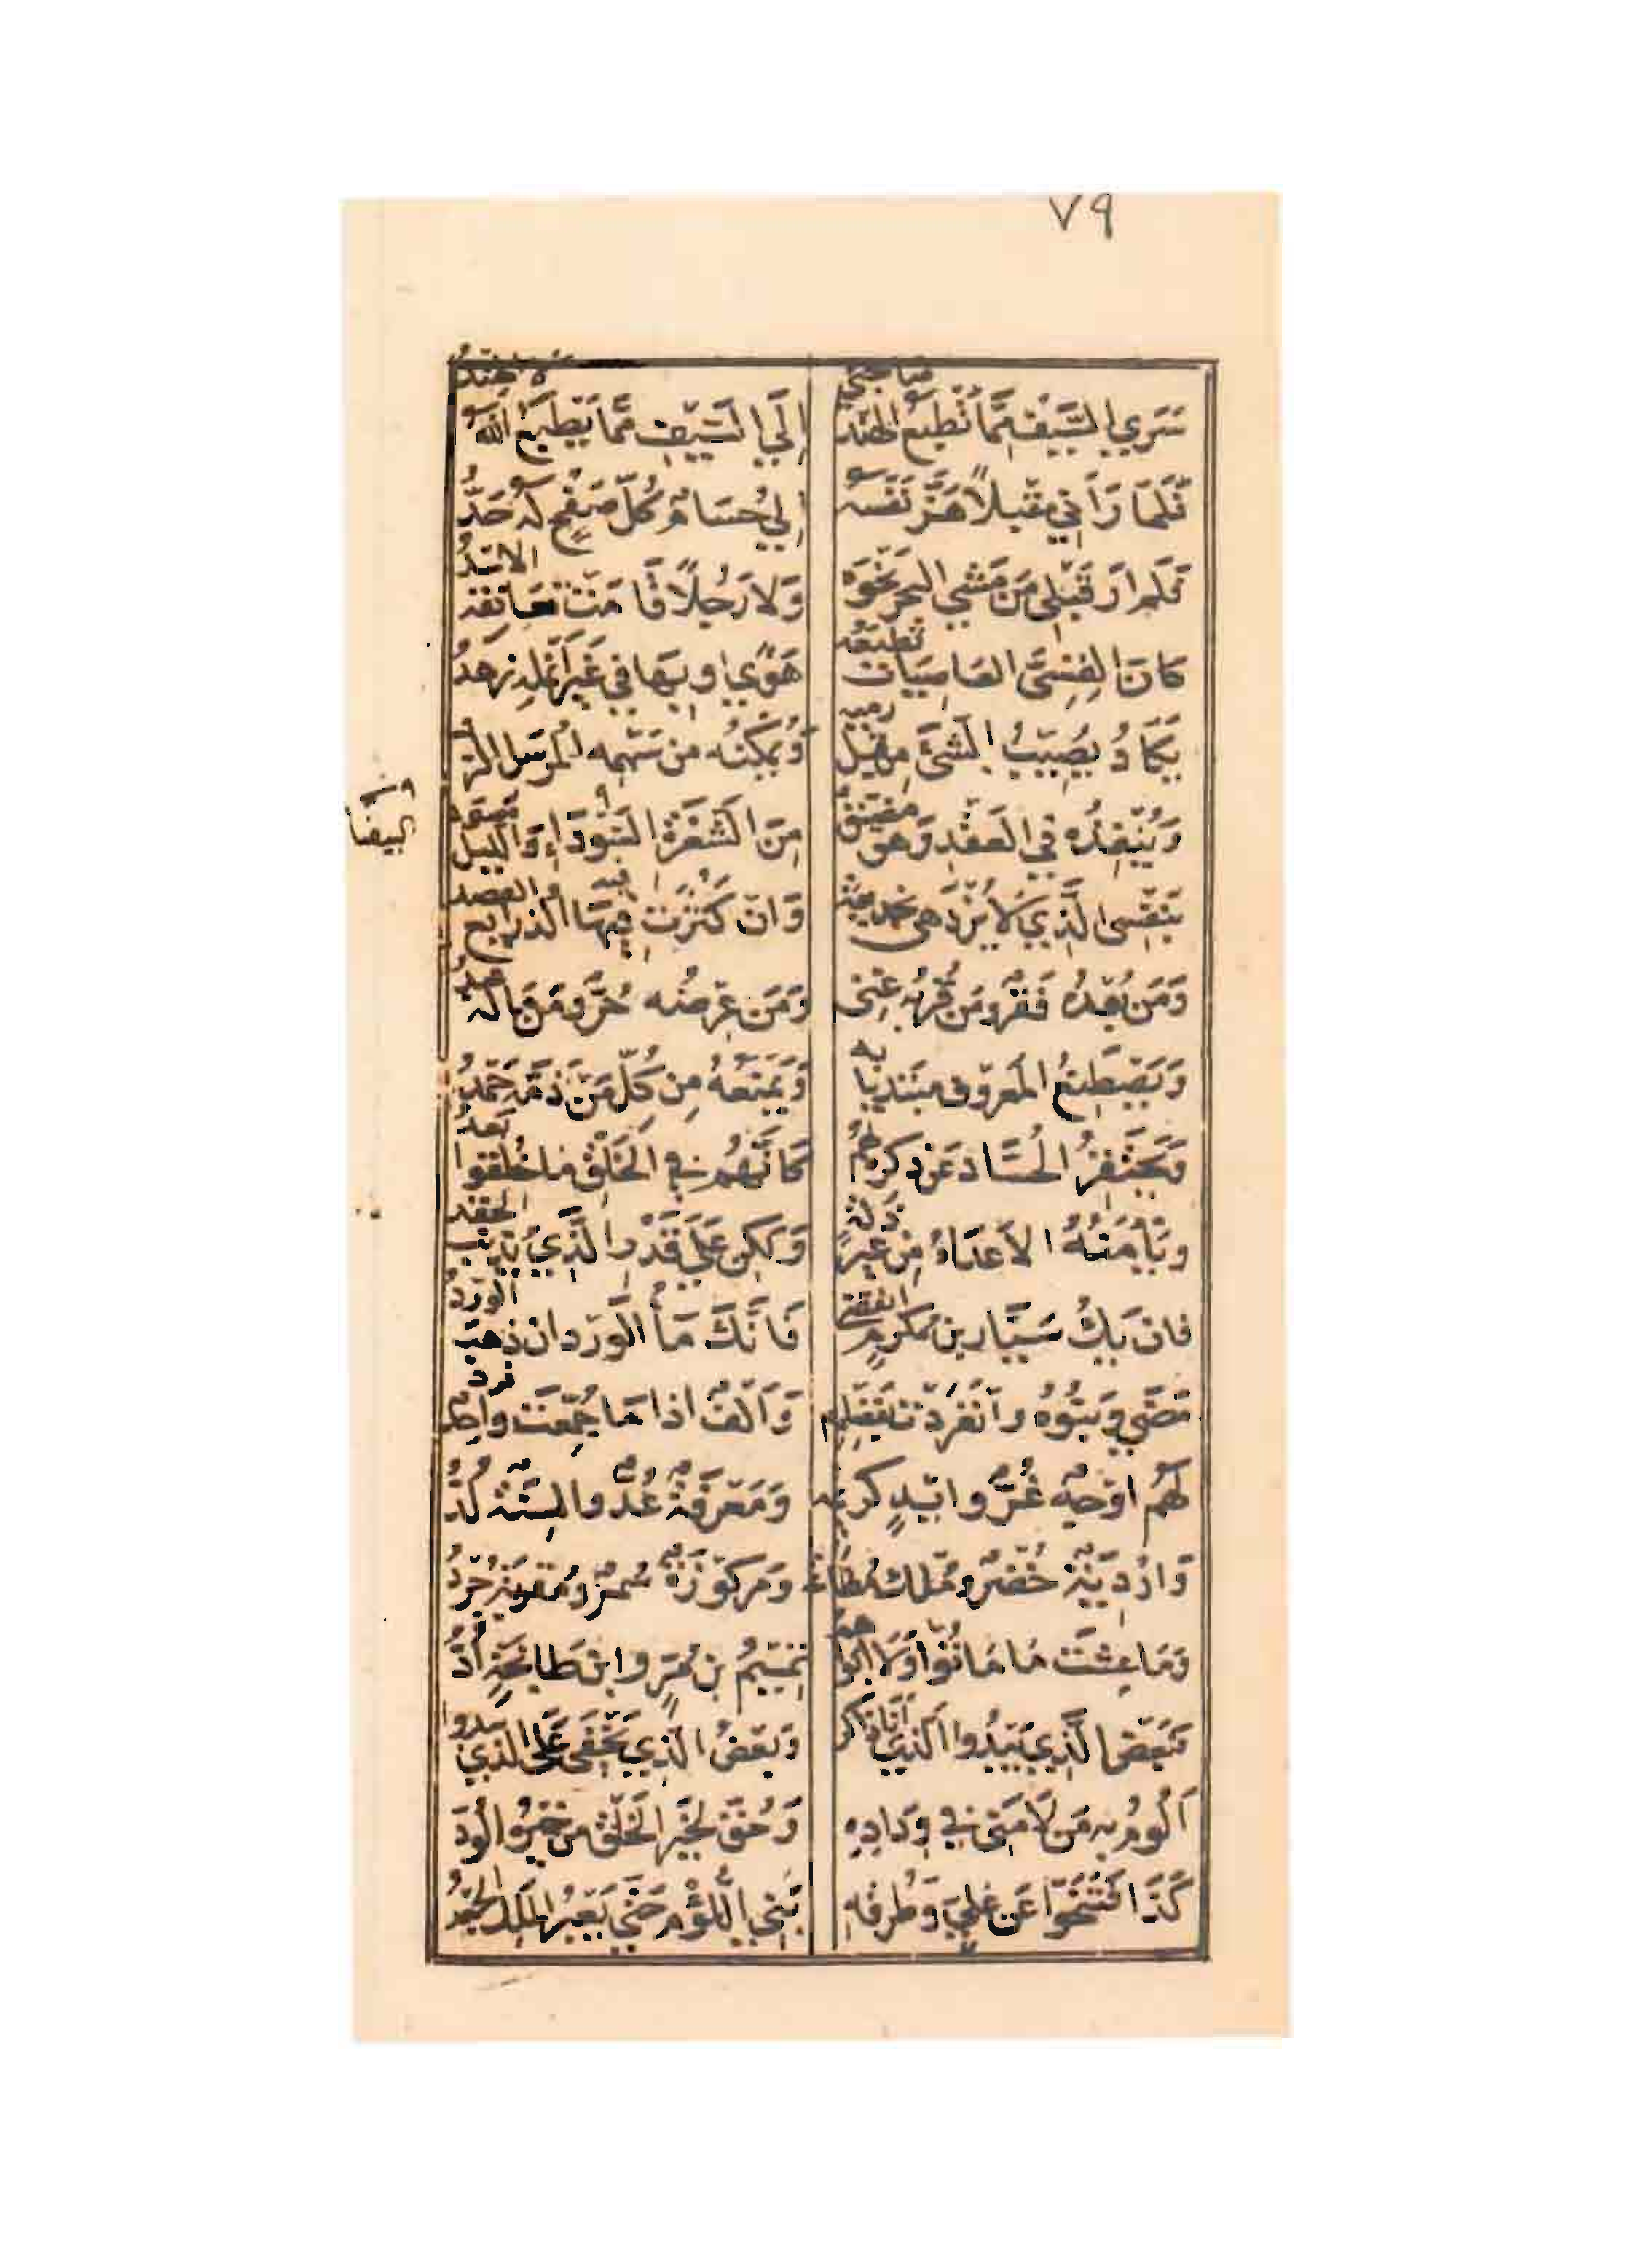 ٧٩
سَرَي السَّيْفُ مِمَّا تَطْبَعُ الهِنْدُ صَاحِبِي إِلَي السَّيْفِ مِمَّا يَطْبَعُ اللَّهُ لَا الهِنْدُ
فَلَمَّا رَآنِي مُقْبِلًا هَزَّ نَفْسَهُ إِلَيَّ حُسَامٌ كُلُّ صَفْحٍ لَهُ حَدُّ
فَلَم ارَ قَبْلِي مَن مَشَي البَحْرُ نَحْوَهُ وَلَا رَجُلًا قَامَتْ تعَانقه الاسْدُ
كَانَ القِسِيَّ العَاصِيَات تُطِيعُه هَوًي او بِهَا فِي غَيْرِ أَنْمُلِهِ زهْدُ
يَكَادُ يُصِيبُ الشَّئَ مِن قَبْلِ رميه وَيُمْكِنُه من سَهْمِه المُرْسَل الرَّدُّ
وَيُنْفِذُه فِي العَقْدِ وَهْوَ مُضَيَّق مِنَ الشَّعْرَةِ السَّوْدَاءِ وَاللَّيْل مُسْوَدُّ
بِنَفْسِي الَّذِي لَا يُزْدَهى بخديعة وَان كَثُرَتْ فِيهَا الذرايع والقصد
وَمَن بُعْدُه فَقْرٌ وَمَن قُرْبُه غِنى وَمَن عِرْضُه حُرٌّ وَمَن مَالُه عبدُ
وَيَصْطَنِعُ المَعْرُوف مبتدِيًا به وَيَمْنَعُهُ مِن كُلِّ مَن ذَمُّه حَمْدُ
وَيَحْتَقِرُ الحُسَّاد عَن ذكرِه لَهُم كَأَنَّهُم فِي الخَلْقِ مَا خُلِقُوا بَعْدُ
وَيَأْمَنُهُ الاعدَاءُ مِن غَيرِ ذلة وَلكِن عَلَي قَدْرِ الَّذِي يُذْنِبُ الحقد
فان يَكُ سَيَّار بن مُكْرَمٍ انقضى فَانَّكَ مَاءُ الوَرْد ان ذهب الوَرْدُ
مَضَي وَبَنُوهُ وانْفَرَدْت بفَضْلِهِم وَأَلْفٌ اذا مَا جُمِّعَتْ واحِدٌ فرد
لَهُم اوْجُهٌ غُرٌّ وايْدٍ كريمة وَمَعْرِفَةٌ عُدٌّ والسِنَةٌ لُدُّ
وَارْدِيَةٌ خُضْرٌ وَمُلْكٌ مُطَاعَةٌ وَمَركُوزَةٌ سُمْرٌ وَمُقْرَبَةٌ جُرْدُ
وَمَا عِشْتَ مَا مَاتُوا وَلَا ابواهم تَمِيمُ بن مُرٍّ وابْن طَابِخَةٍ أُدُّ
فَبَعْضُ الَّذِي يَبْدُوا الَّذِي أَنَا ذاكر وَبَعْضُ الَّذِي يَخْفَى عَلَى الَّذِي يبدوا
أَلُومُ بِهِ مَن لَامَنِي فِي وِدَادِهِ وَحُقَّ لِخَيْرِ الخَلْقِ مِن خَيْرِهِ الوُدّ
كَذَا فَتَنَحَّوْا عَن عَلِيٍّ وَطُرقِهِ بَنِي اللُّؤْمِ حَتَّي يَعْبُرَ المَلِكُ الجَعْدُ